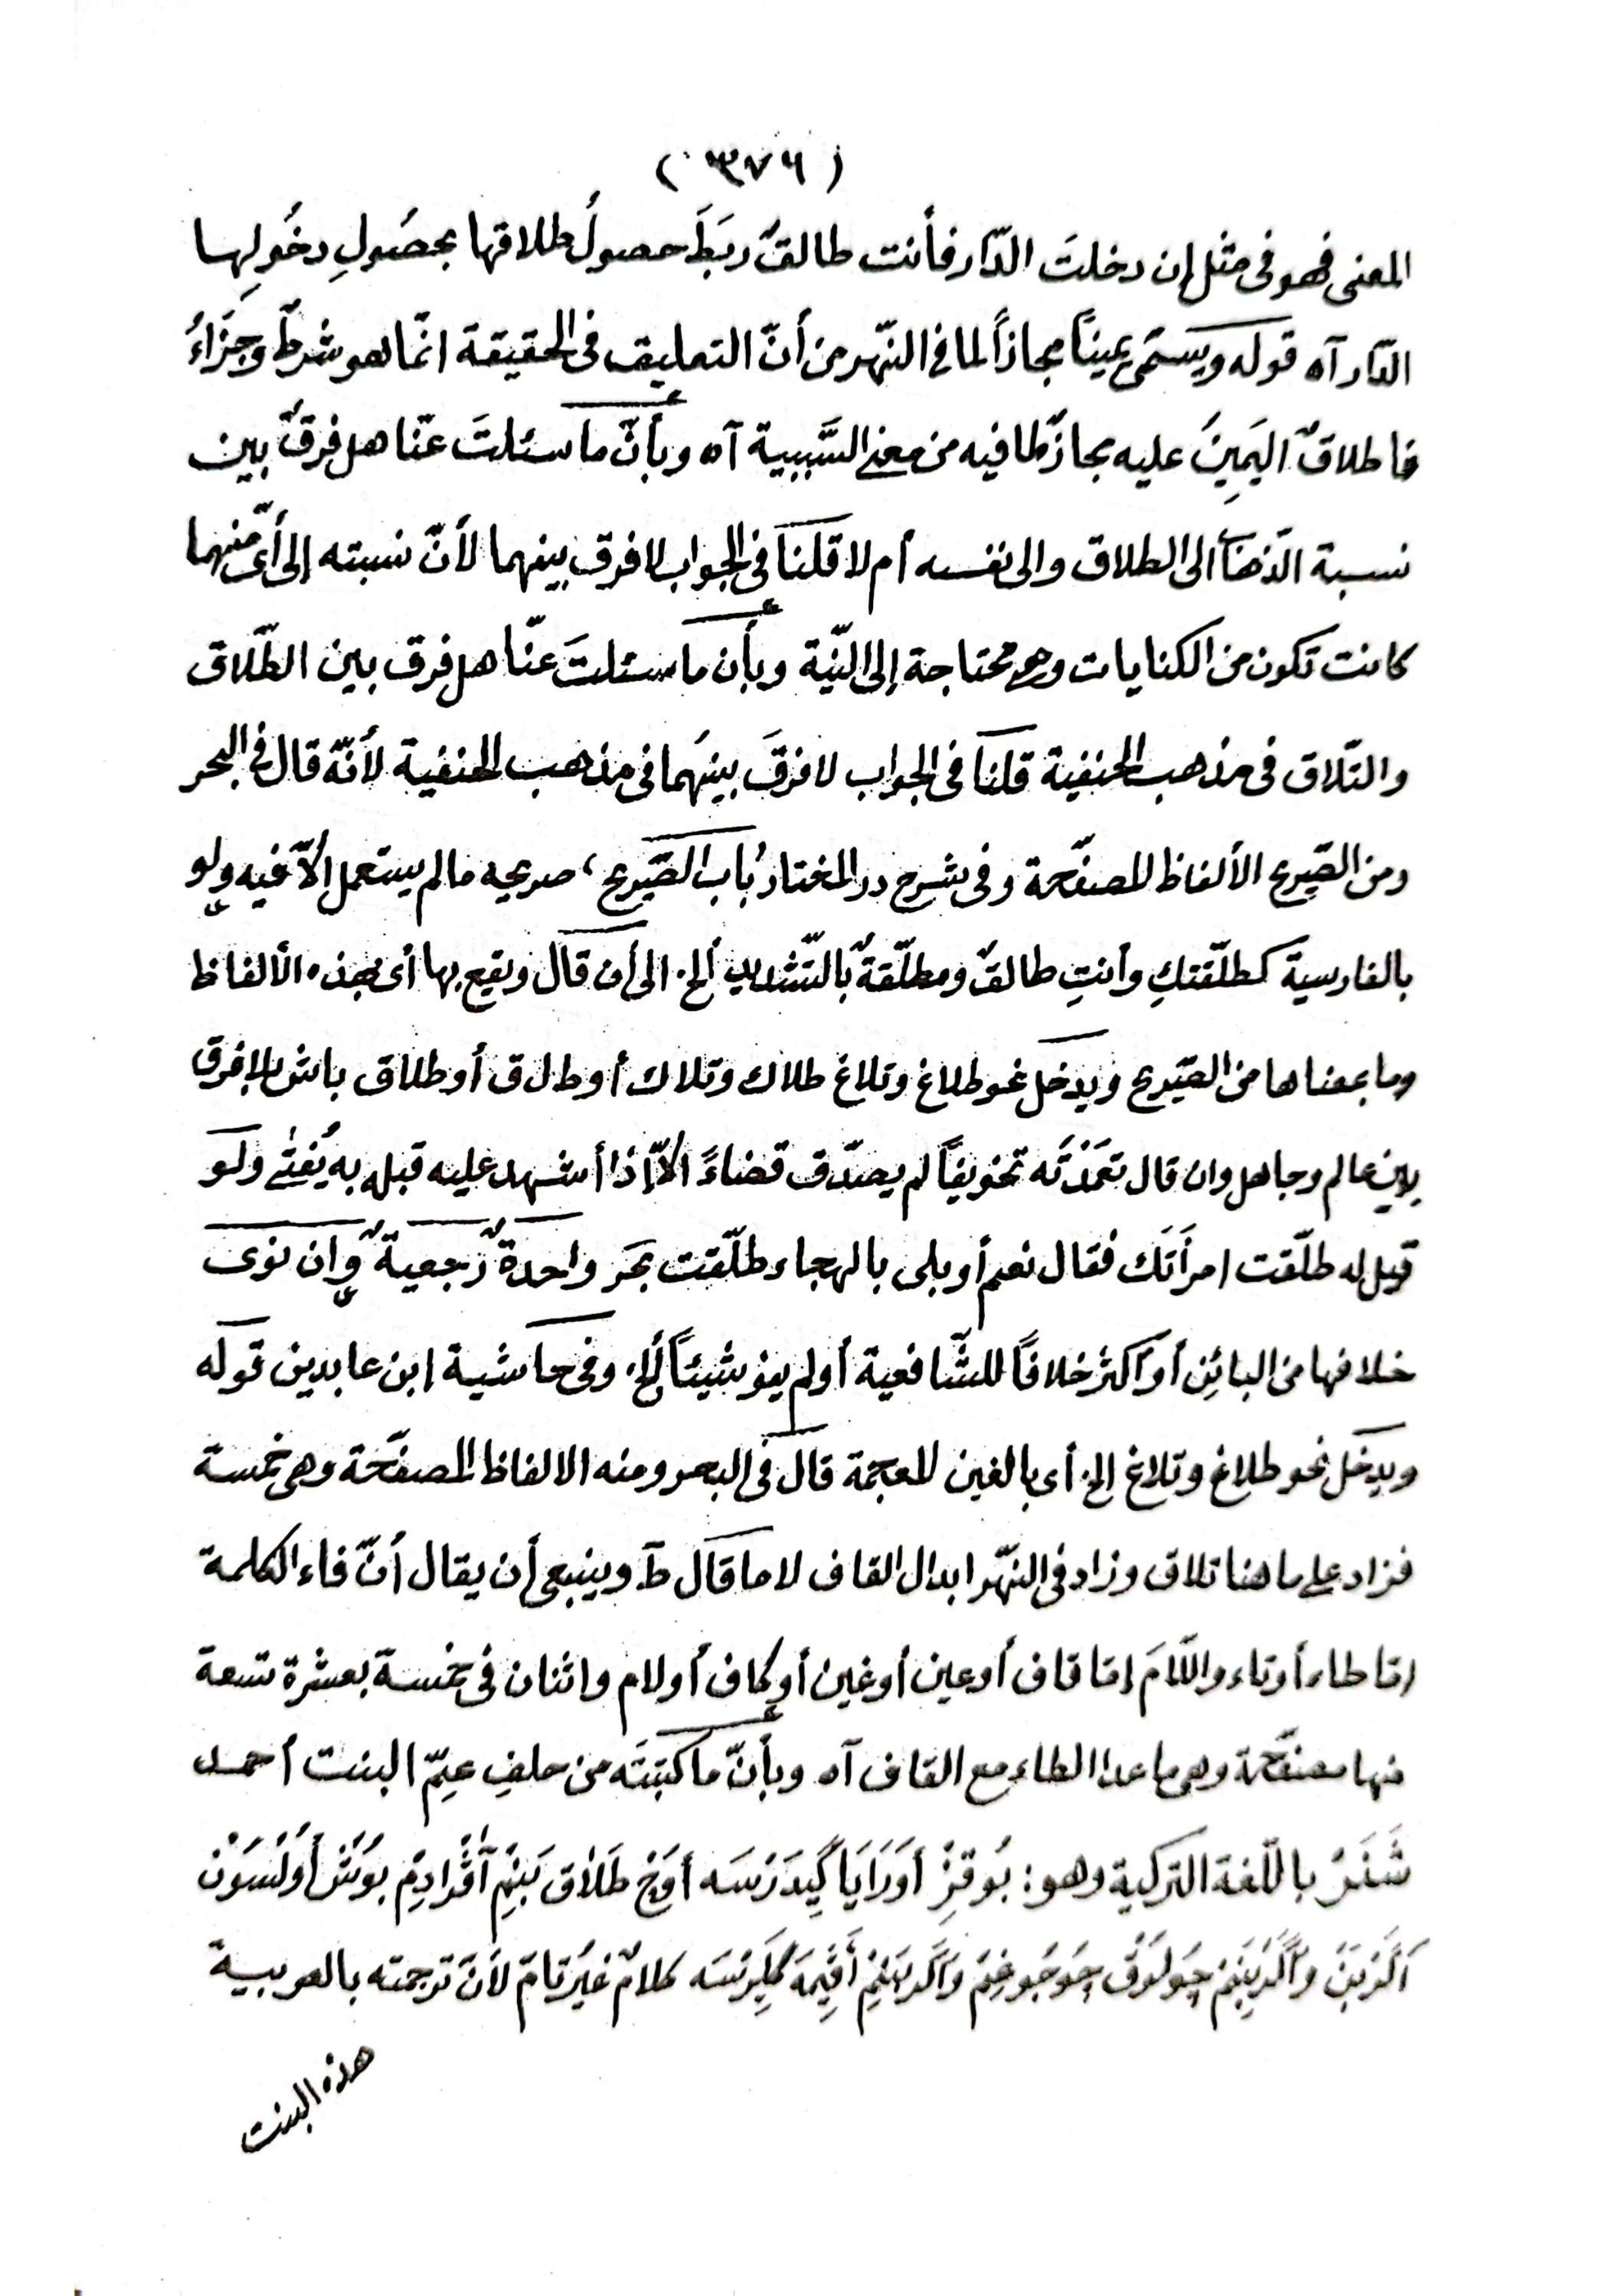 (٣٧٦)
المعنى فهو فى مثل إن دخلتَ الدّار فأنت طالقٌ ربَطَ حصولُ طلاقها بحصُولِ دخُولِها
الدّار آه قوله ويسمّى يميناً مجازاً لما فى النّهر من أنّ التعليق فى الحقيقة انّما هو شرطٌ وجزَاءُ
فاطلاقُ اليَمِينَ عليه مجازٌ لما فيه من معنى السَّببية آه وبأنّ ما سئلتَ عنّا هل فرقٌ بين
نسبة الذهاب الى الطلاق والى نفسه أم لا قلنا فى الجواب لا فرق بينهما لأنّ نسبته إلى أىّ منهما
كانت تكون من الكنايات وهى محتاجة إلى النيّة وبأن ما سئلتَ عنّا هل فرق بين الطّلاق
والتّلاق فى مذهب الحنفية قلنَا فى الجواب لا فرقَ بينهُما فى مذهب الحنفية لأنّه قال فى البحر
ومن الصّريح الألفاظ المصفّحة وفى شرح در المختار بُاب الصّريح، صريحه مالم يستعمل الاّ فيه ولو
بالفارسية كطلّقتكِ وأنتِ طالقٌ ومطلّقةٌ بالتّشديد ألخ. الى أن قال ويقع بها أى بهذه الألفاظ
وما بمعناها من الصّريح ويدخل نحو طلاغ وتلاغ طلاك وتلاك أو ط ل ق أو طلاق باش بلا فرق
بين عالم وجاهل وان قال تعَمّدتُه تخويفاً لم يصدّق قضاءً الاّ إذا أشهد عليه قبله به يُفتٰى ولو
قيل له طلّقت امرأتَك فقال نعم أو بلى بالهجاء طلّقت بحَر واحدةٌ رجعيةٌ وان نوى
خلافها من البائنِ أو أكثرَ خلافاً للشّافعية أو لم ينو شيئاً ألخ. وفى حاشية إبن عابدين قوله
ويدخل نحو طلاغ وتلاغ الخ. أى بالغين المعجمة قال فى البحر ومنه الالفاظ المصفّحة وهى خمسة
فزاد على ما هنا تلاق وزاد فى النهّر ابدال القاف لاما قال طَ وينبغى أن يقال أنّ فاء الكلمة
امّا طاء أو تاء واللاّمَ إمّا قاف أو عين أو غين أو كاف أو لام واثنان فى خمسة بعشرة تسعة
منها مصفّحة وهى ما عدا الطاء مع القاف آه وبأنّ ما كتبتَه من حلفِ عمِّ البنت أحمد
شَنَرْ باللّغة التركية وهو: بُوقِزْ أوَرَايَا گِيدَرْسَه أوَچْ طَلاٰق بَنِمْ آڤْرادِمْ بوُشْ أوُلْسَوُنْ
اَگَرْبَنْ وَاَگَرْبَنِمْ چَولُوقْ چوُجُوغِمْ وَاَگَرْبَنِمْ أَڤِيمَه گَلِرْسَه كلامٌ غيُرتامّ لأنّ ترجمته بالعربيية
هذه البنت